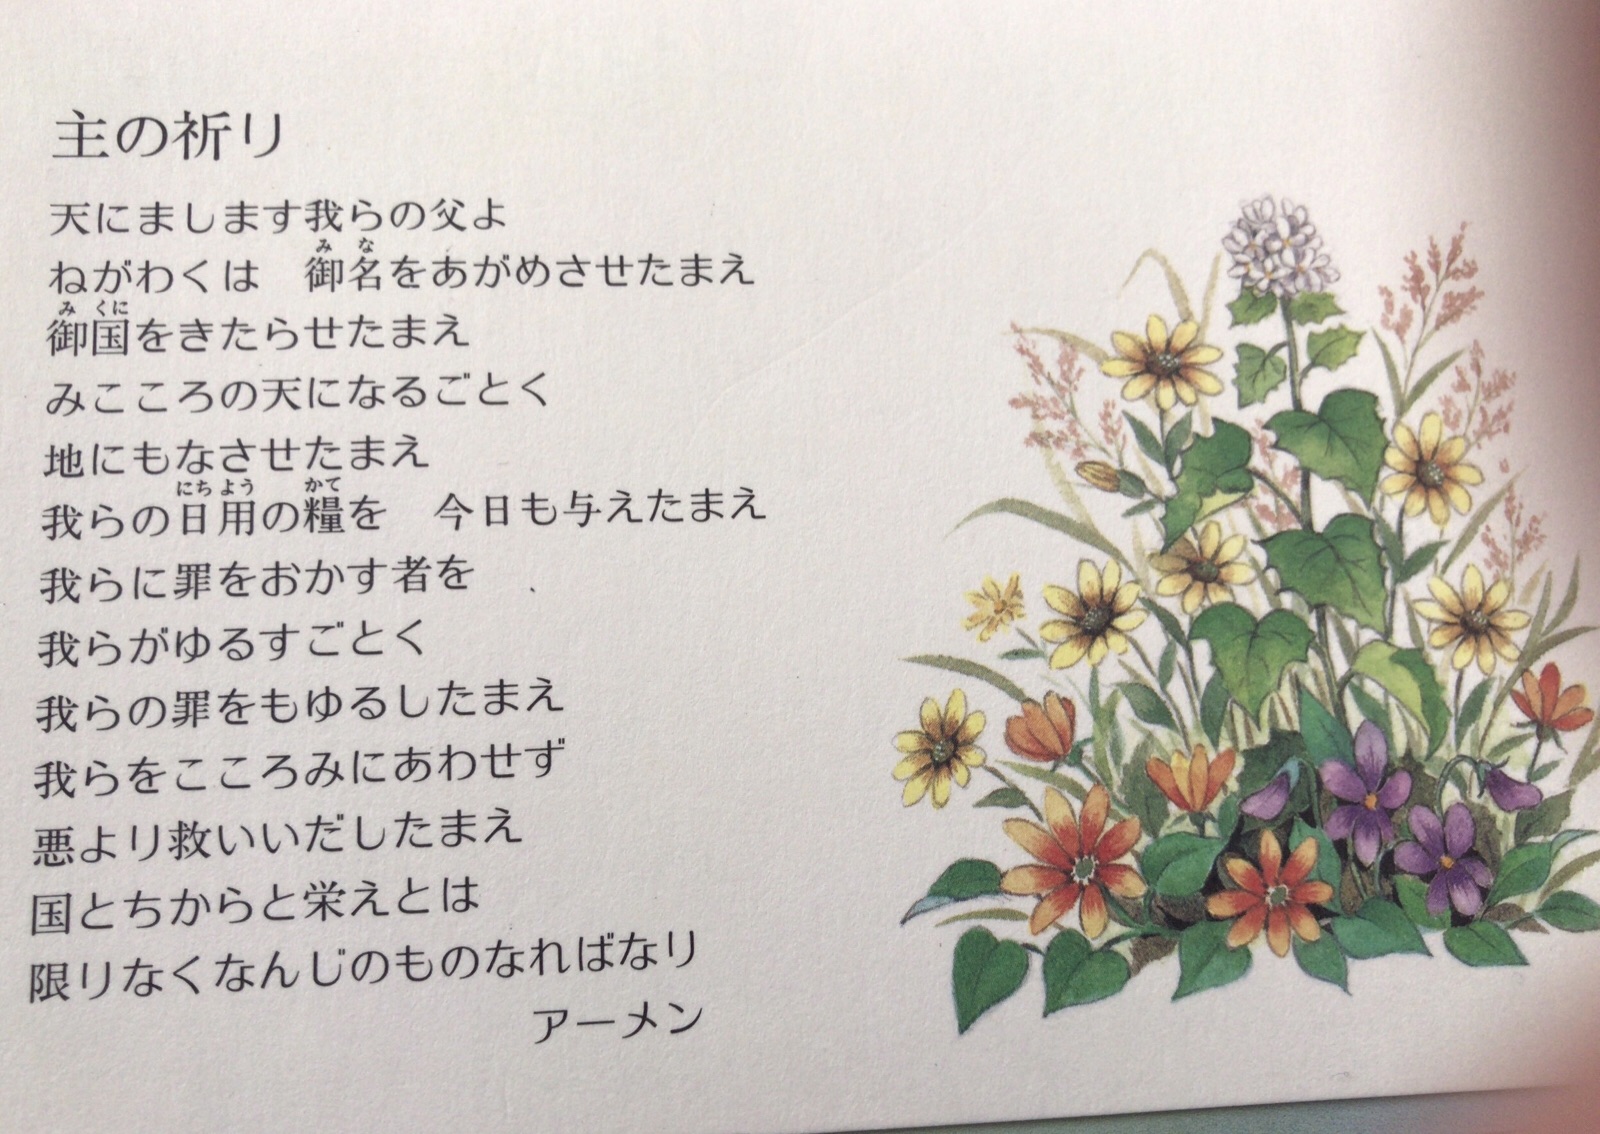 主の祈り
天にまします我らの父よ
ねがわくは　御名をあがめさせたまえ
御国をきたらせたまえ
みこころの天になるごとく
地にもなさせたまえ
我らの日用の糧を　今日も与えたまえ
我らに罪をおかす者を
我らがゆるすごとく
我らの罪をもゆるしたまえ
我らをこころみにあわせず
悪より救いいだしたまえ
国とちからと栄えとは
限りなくなんじのものなればなり
アーメン